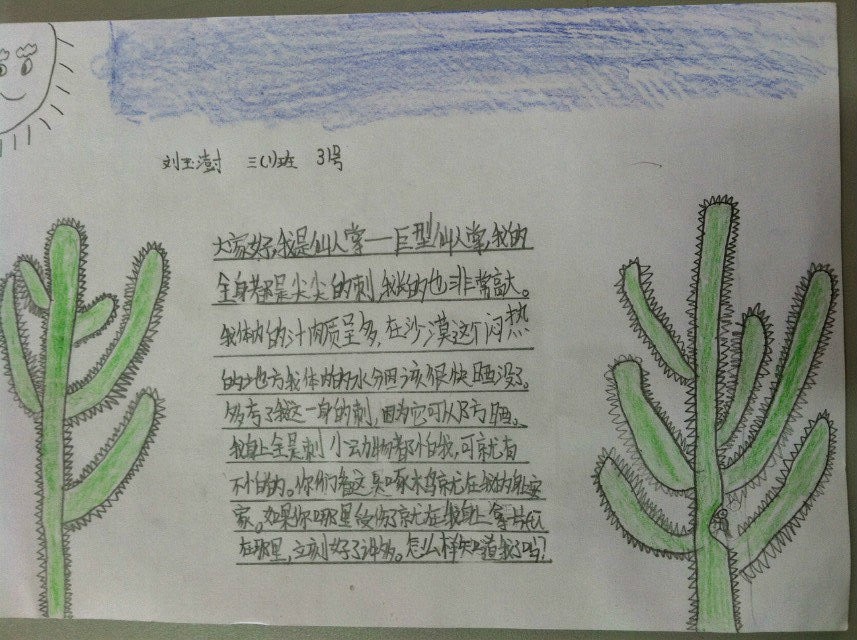 刘玉澍 三(1)班 31号
大家好,我是仙人掌——巨型仙人掌,我的
全身都是尖尖的刺,我长的也非常高大。
我体内的汁肉质呈多,在沙漠这个闷热
的地方我体内的水分因该很快晒没了。
多亏了我这一身的刺,因为它可以反方晒。
我身上全是刺 小动物都怕我,可就有
不怕的。你们看这只啄木鸟就在我的身上安
家。如果你哪里 你了就在我身上拿片
在那里,立刻好了许多。怎么样知道我了吗?